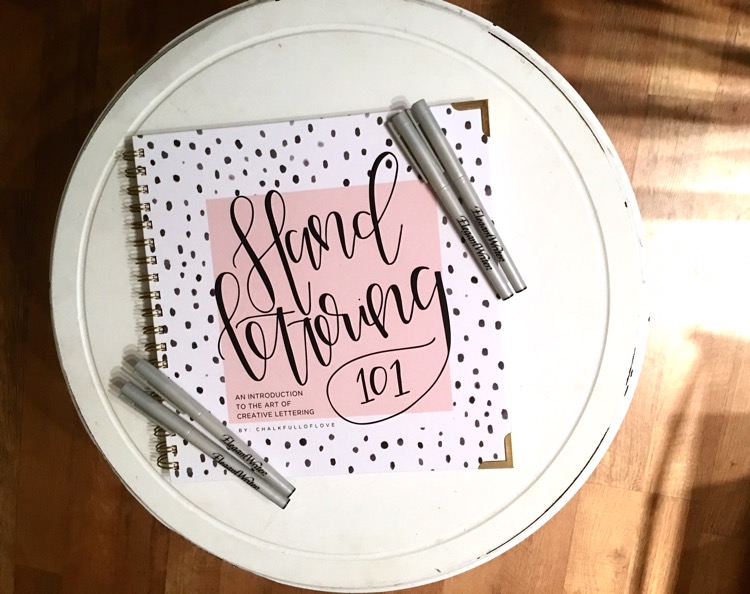 Hand
lettering
101
AN INTRODUCTION
TO THE ART OF
CREATIVE LETTERING
BY: CHALKFULLOFLOVE
Elegant Writer
Elegant Writer
Elegant Writer
Elegant Writer